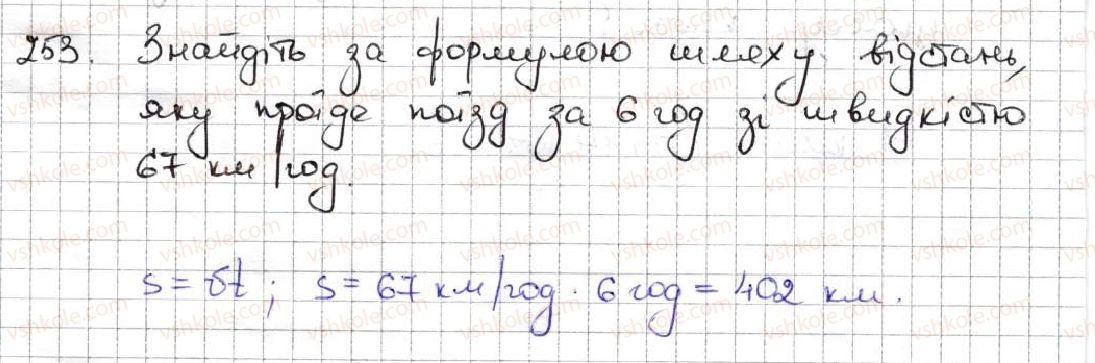 253. Знайдіть за формулою шляху відстань,
яку проїде поїзд за 6 год зі швидкістю
67 км/год.
s = vt; s = 67 км/год · 6 год = 402 км.